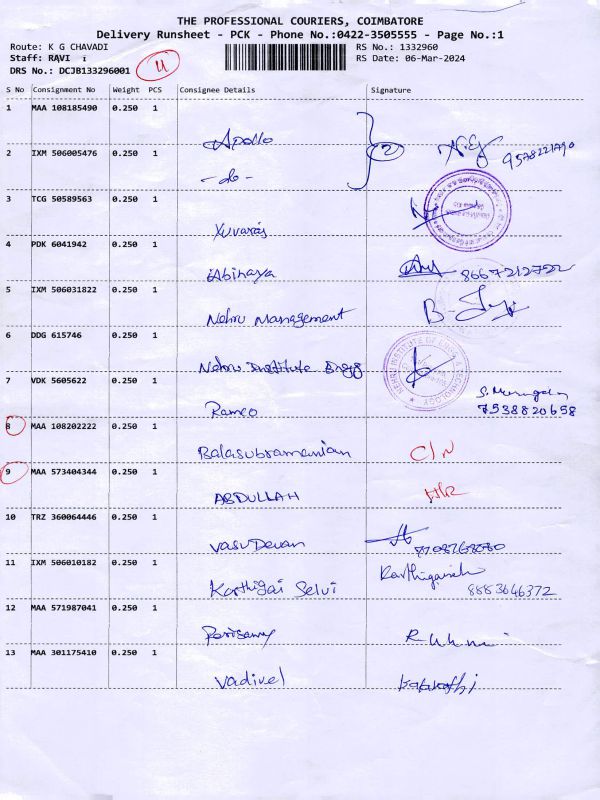 THE PROFESSIONAL COURIERS, COIMBATORE
Delivery Runsheet - PCK - Phone No.:0422-3505555 - Page No.:1
Route: K G CHAVADI
RS No.: 1332960
Staff: RAVI i
RS Date: 06-Mar-2024
DRS No.: DCJB133296001
11
S No Consignment No Weight PCS Consignee Details Signature
1 MAA 108185490 0.250 1
Apollo
2
9578221790
2 IXM 506005476 0.250 1
-do-
3 TCG 50589563 0.250 1
Yuvaraj
4 PDK 6041942 0.250 1
Abinaya
8667212722
5 IXM 506031822 0.250 1
Nehru Management
6 DDG 615746 0.250 1
Nehru Institute Engg
7 VDK 5605622 0.250 1
Rameo
7538820658
8 MAA 108202222 0.250 1
Balasubramanian C/N
9 MAA 573404344 0.250 1
ABDULLAH
10 TRZ 360064446 0.250 1
VasuDevan
11 IXM 506010182 0.250 1
Karthigai Selvi
8883646372
12 MAA 571987041 0.250 1
Perisamy
13 MAA 301175410 0.250 1
Vadivel